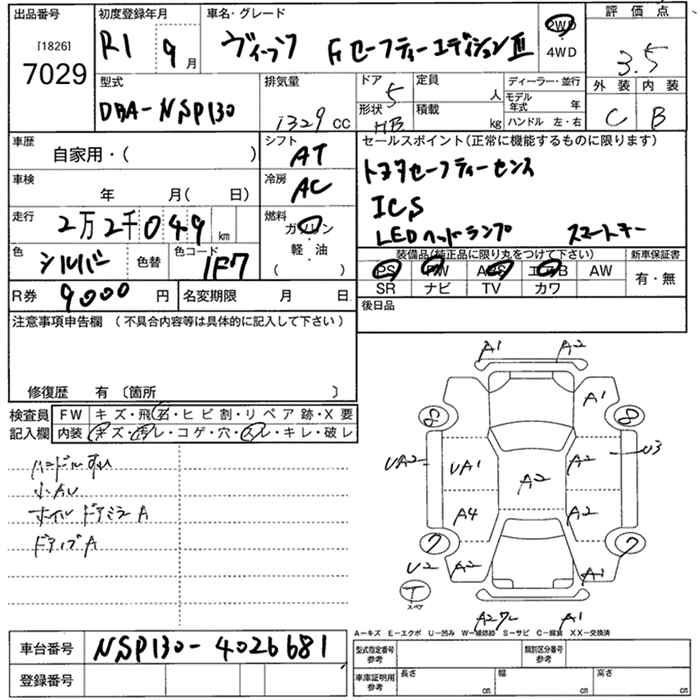 出品番号
[1826]
7029
初度登録年月
R1 9月
車名・グレード
ヴィッツ Fセーフティーエディション Ⅲ
2WD
4WD
評価点
3.5
外装 内装
C B
型式
DBA-NSP130
排気量
1329 cc
ドア 5
形状 HB
定員 人
積載 kg
ディーラー・並行
モデル年式 年
ハンドル 左・右
車歴
自家用・( )
シフト
AT
車検
年 月( 日)
冷房
AC
走行
2万2千049 km
燃料
ガソリン・軽油
( )
色
シルバー
色替
色コード
1F7
R券 9000 円
名変期限 月 日
セールスポイント(正常に機能するものに限ります)
トヨタセーフティーセンス
ICS
LEDヘッドランプ スマートキー
装備品(純正品に限り丸をつけて下さい)
PS PW ABS エアB AW
SR ナビ TV カワ
新車保証書
有・無
後日品
注意事項申告欄 (不具合内容等は具体的に記入して下さい)
修復歴 有〔箇所 〕
検査員記入欄
FW キズ・飛石・ヒビ割・リペア跡・X要
内装 キズ・汚レ・コゲ・穴・スレ・キレ・破レ
ハンドルすれ
小AU
ホイル ドアミラーA
ドアップA
A1 A2
A1
8 8
UA2 UA1 A2 A2 U3
A4 A2
7 7
U2 A2 A1
T
スペア
A1
A-キズ E-エクボ U-凹み W-補修跡 S-サビ C-腐食 XX-交換済
車台番号 NSP130-4026681
登録番号
型式指定番号
参考
類別区分番号
参考
車庫証明用
参考
長さ cm 幅 cm 高さ cm